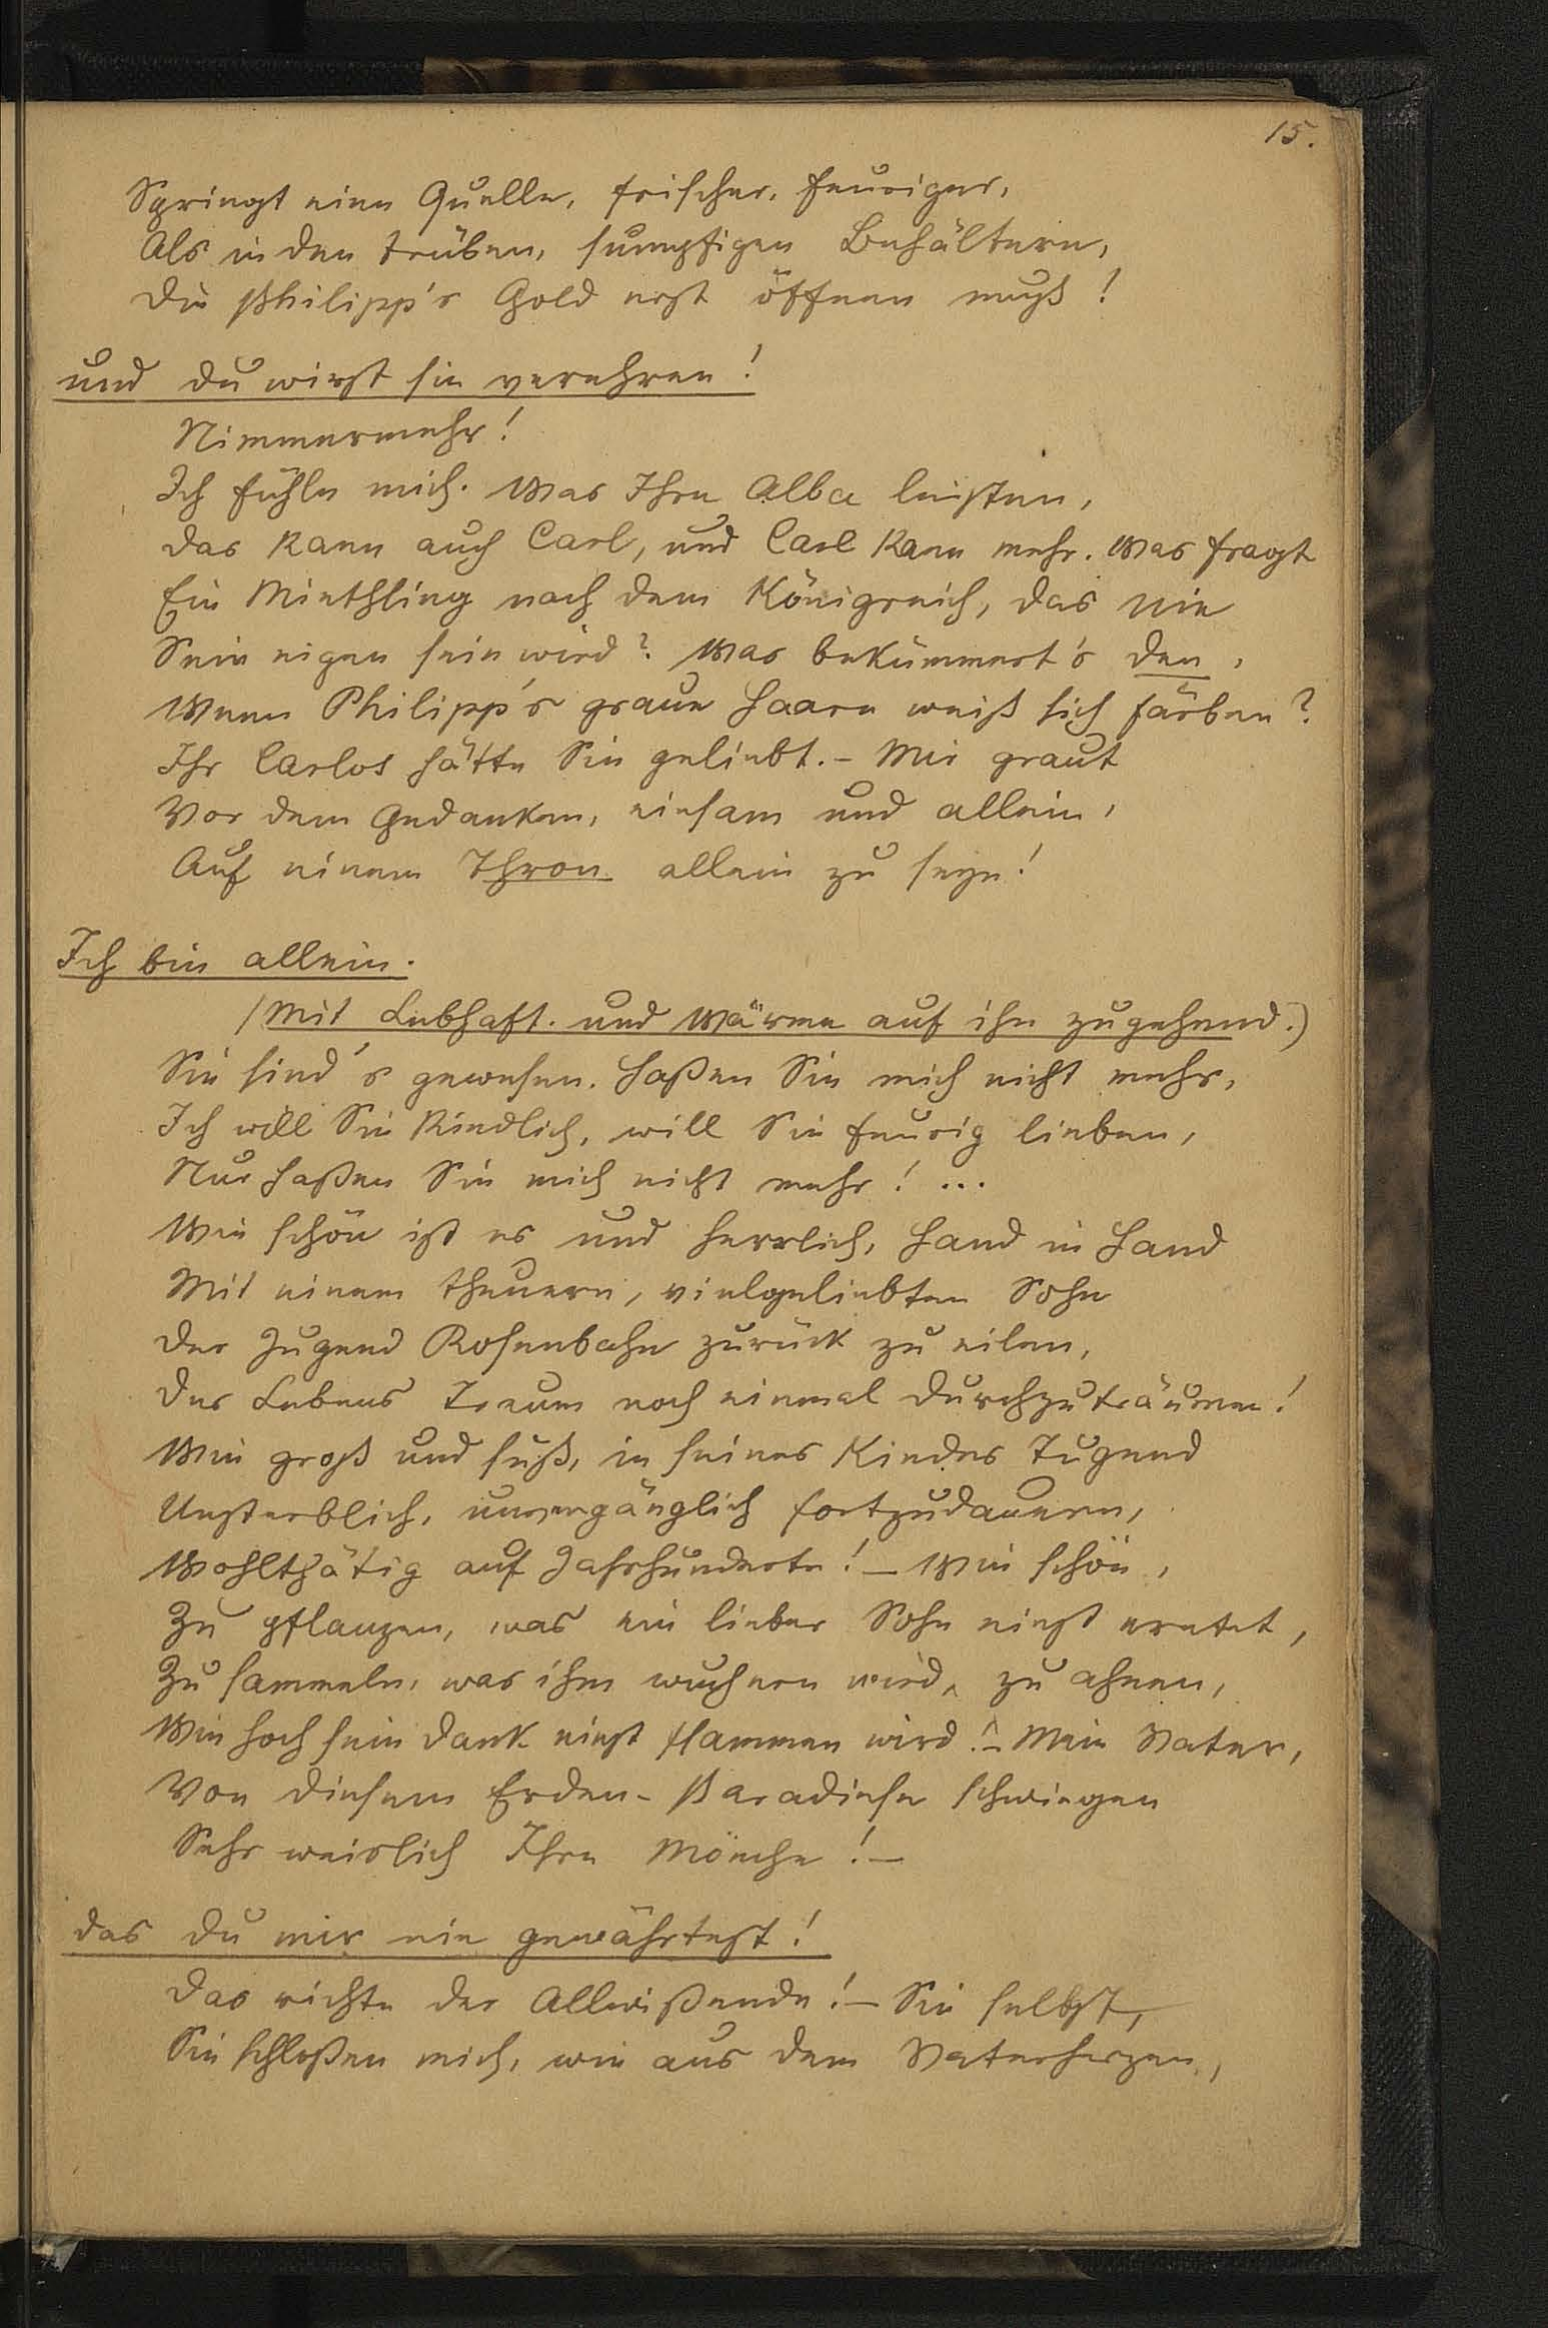 15.
Springt eine Quelle, frischer, feuriger,
Als in den trüben, sumpfigen Behältern,
Die Philipp's Gold erst öffnen muß!
und du wirst sie verehren!
Nimmermehr!
Ich fühle mich. Was Ihre Alba leisten,
Das kann auch Carl, und Carl kann mehr. Was fragt
Ein Miethling nach dem Königreich, das nie
Sein eigen sein wird? Was bekümmert's den,
Wenn Philipp's graue Haare weiß sich färben?
Ihr Carlos hätte Sie geliebt. – Mir graut
Vor dem Gedanken, einsam und allein,
Auf einem Thron allein zu seyn!
Ich bin allein.
(Mit Lebhaft. und Wärme auf ihn zugehend.)
Sie sind's gewesen. Haßen Sie mich nicht mehr,
Ich will Sie kindlich, will Sie feurig lieben,
Nur haßen Sie mich nicht mehr! ...
Wie schön ist es und herrlich, Hand in Hand
Mit einem theuern, vielgeliebten Sohn
Der Jugend Rosenbahn zurück zu eilen,
Des Lebens Traum noch einmal durchzuträumen!
Wie groß und süß, in seines Kindes Tugend
Unsterblich, unvergänglich fortzudauern,
Wohlthätig auf Jahrhunderte! – Wie schön,
Zu pflanzen, was ein lieber Sohn einst erntet,
Zu sammeln, was ihm wuchern wird, zu ahnen,
Wie hoch sein Dank einst flammen wird! – Mein Vater,
Von diesem Erden-Paradiese schwiegen
Sehr weislich Ihre Mönche! –
das du mir nie gewährtest!
Das richte der Allwißende! – Sie selbst,
Sie schloßen mich, wie aus dem Vaterherzen,